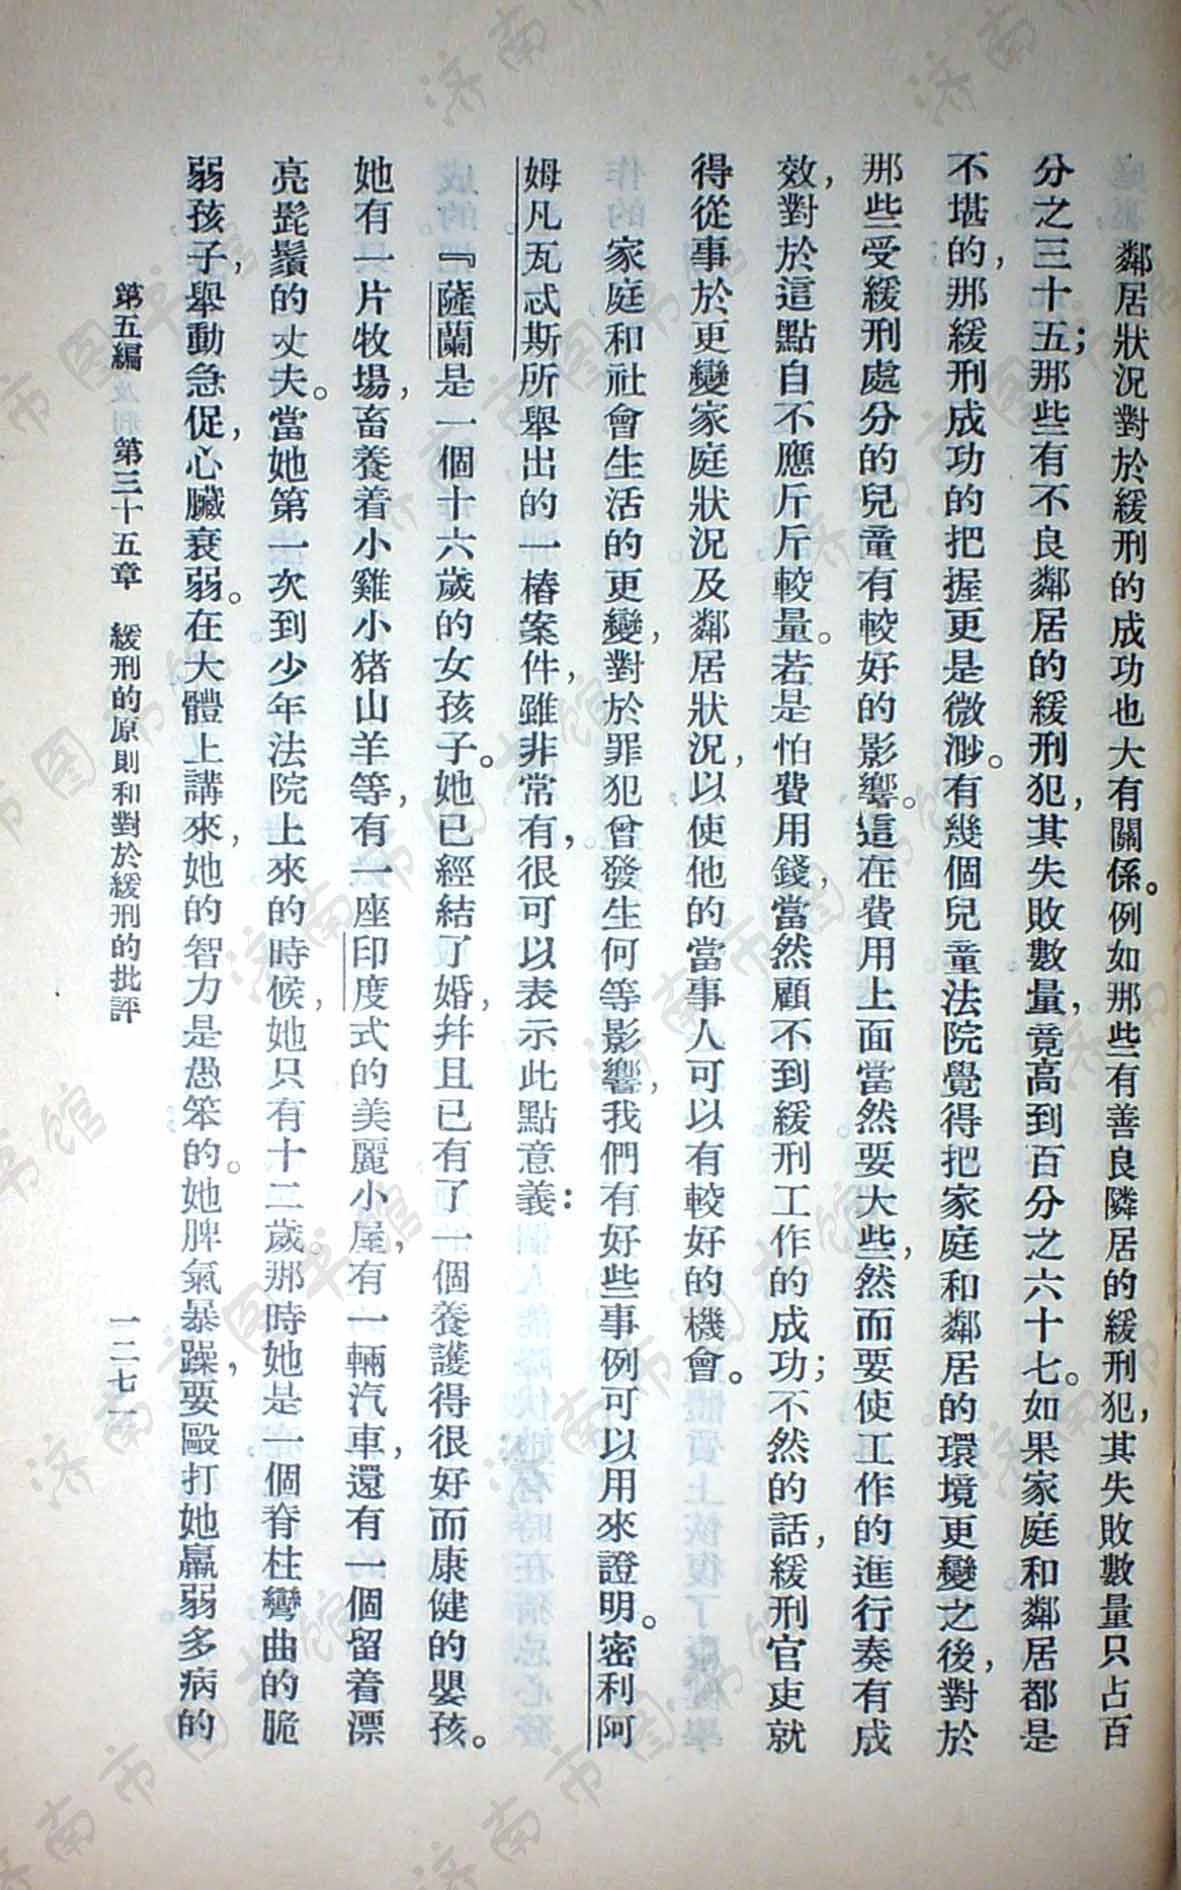 鄰居狀況對於緩刑的成功也大有關係。例如那些有善良隣居的緩刑犯，其失敗數量只占百
分之三十五；那些有不良鄰居的緩刑犯，其失敗數量，竟高到百分之六十七。如果家庭和鄰居都是
不堪的，那緩刑成功的把握更是微渺。有幾個兒童法院覺得把家庭和鄰居的環境更變之後，對於
那些受緩刑處分的兒童有較好的影響。這在費用上面當然要大些，然而要使工作的進行奏有成
效，對於這點自不應斤斤較量。若是怕費用錢，當然顧不到緩刑工作的成功；不然的話，緩刑官吏就
得從事於更變家庭狀況及鄰居狀況，以使他的當事人可以有較好的機會。
家庭和社會生活的更變，對於罪犯曾發生何等影響，我們有好些事例可以用來證明。密利阿
姆凡瓦忒斯所舉出的一樁案件，雖非常有，很可以表示此點意義：
『薩蘭是一個十六歲的女孩子。她已經結了婚，幷且已有了一個養護得很好而康健的嬰孩。
她有一片牧場，畜養着小雞小猪山羊等，有一座印度式的美麗小屋，有一輛汽車，還有一個留着漂
亮髭鬚的丈夫。當她第一次到少年法院上來的時候，她只有十二歲。那時她是一個脊柱彎曲的脆
弱孩子，舉動急促，心臟衰弱。在大體上講來，她的智力是愚笨的。她脾氣暴躁，要毆打她羸弱多病的
第五編 第三十五章 緩刑的原則和對於緩刑的批評 一二七一
济南市图书馆